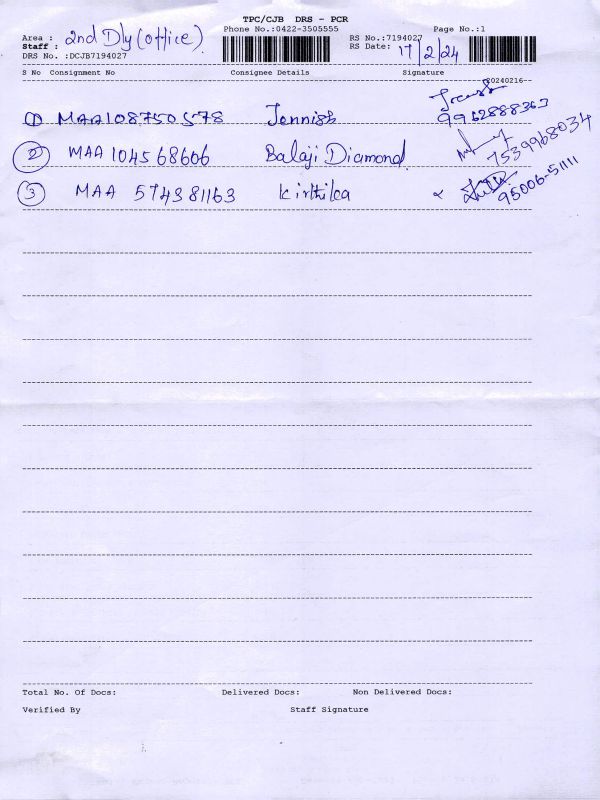 TPC/CJB DRS - PCR
Phone No.:0422-3505555 Page No.:1
Area : 2nd Dly (office) RS No.:7194027
Staff : RS Date: 17/2/24
DRS No. :DCJB7194027
S No Consignment No Consignee Details Signature
20240216
① MAA108750578 Jennish 9962888363
② MAA 104568606 Balaji Diamond 7539968034
③ MAA 574381163 Kirthika 95006-51111
Total No. Of Docs: Delivered Docs: Non Delivered Docs:
Verified By Staff Signature